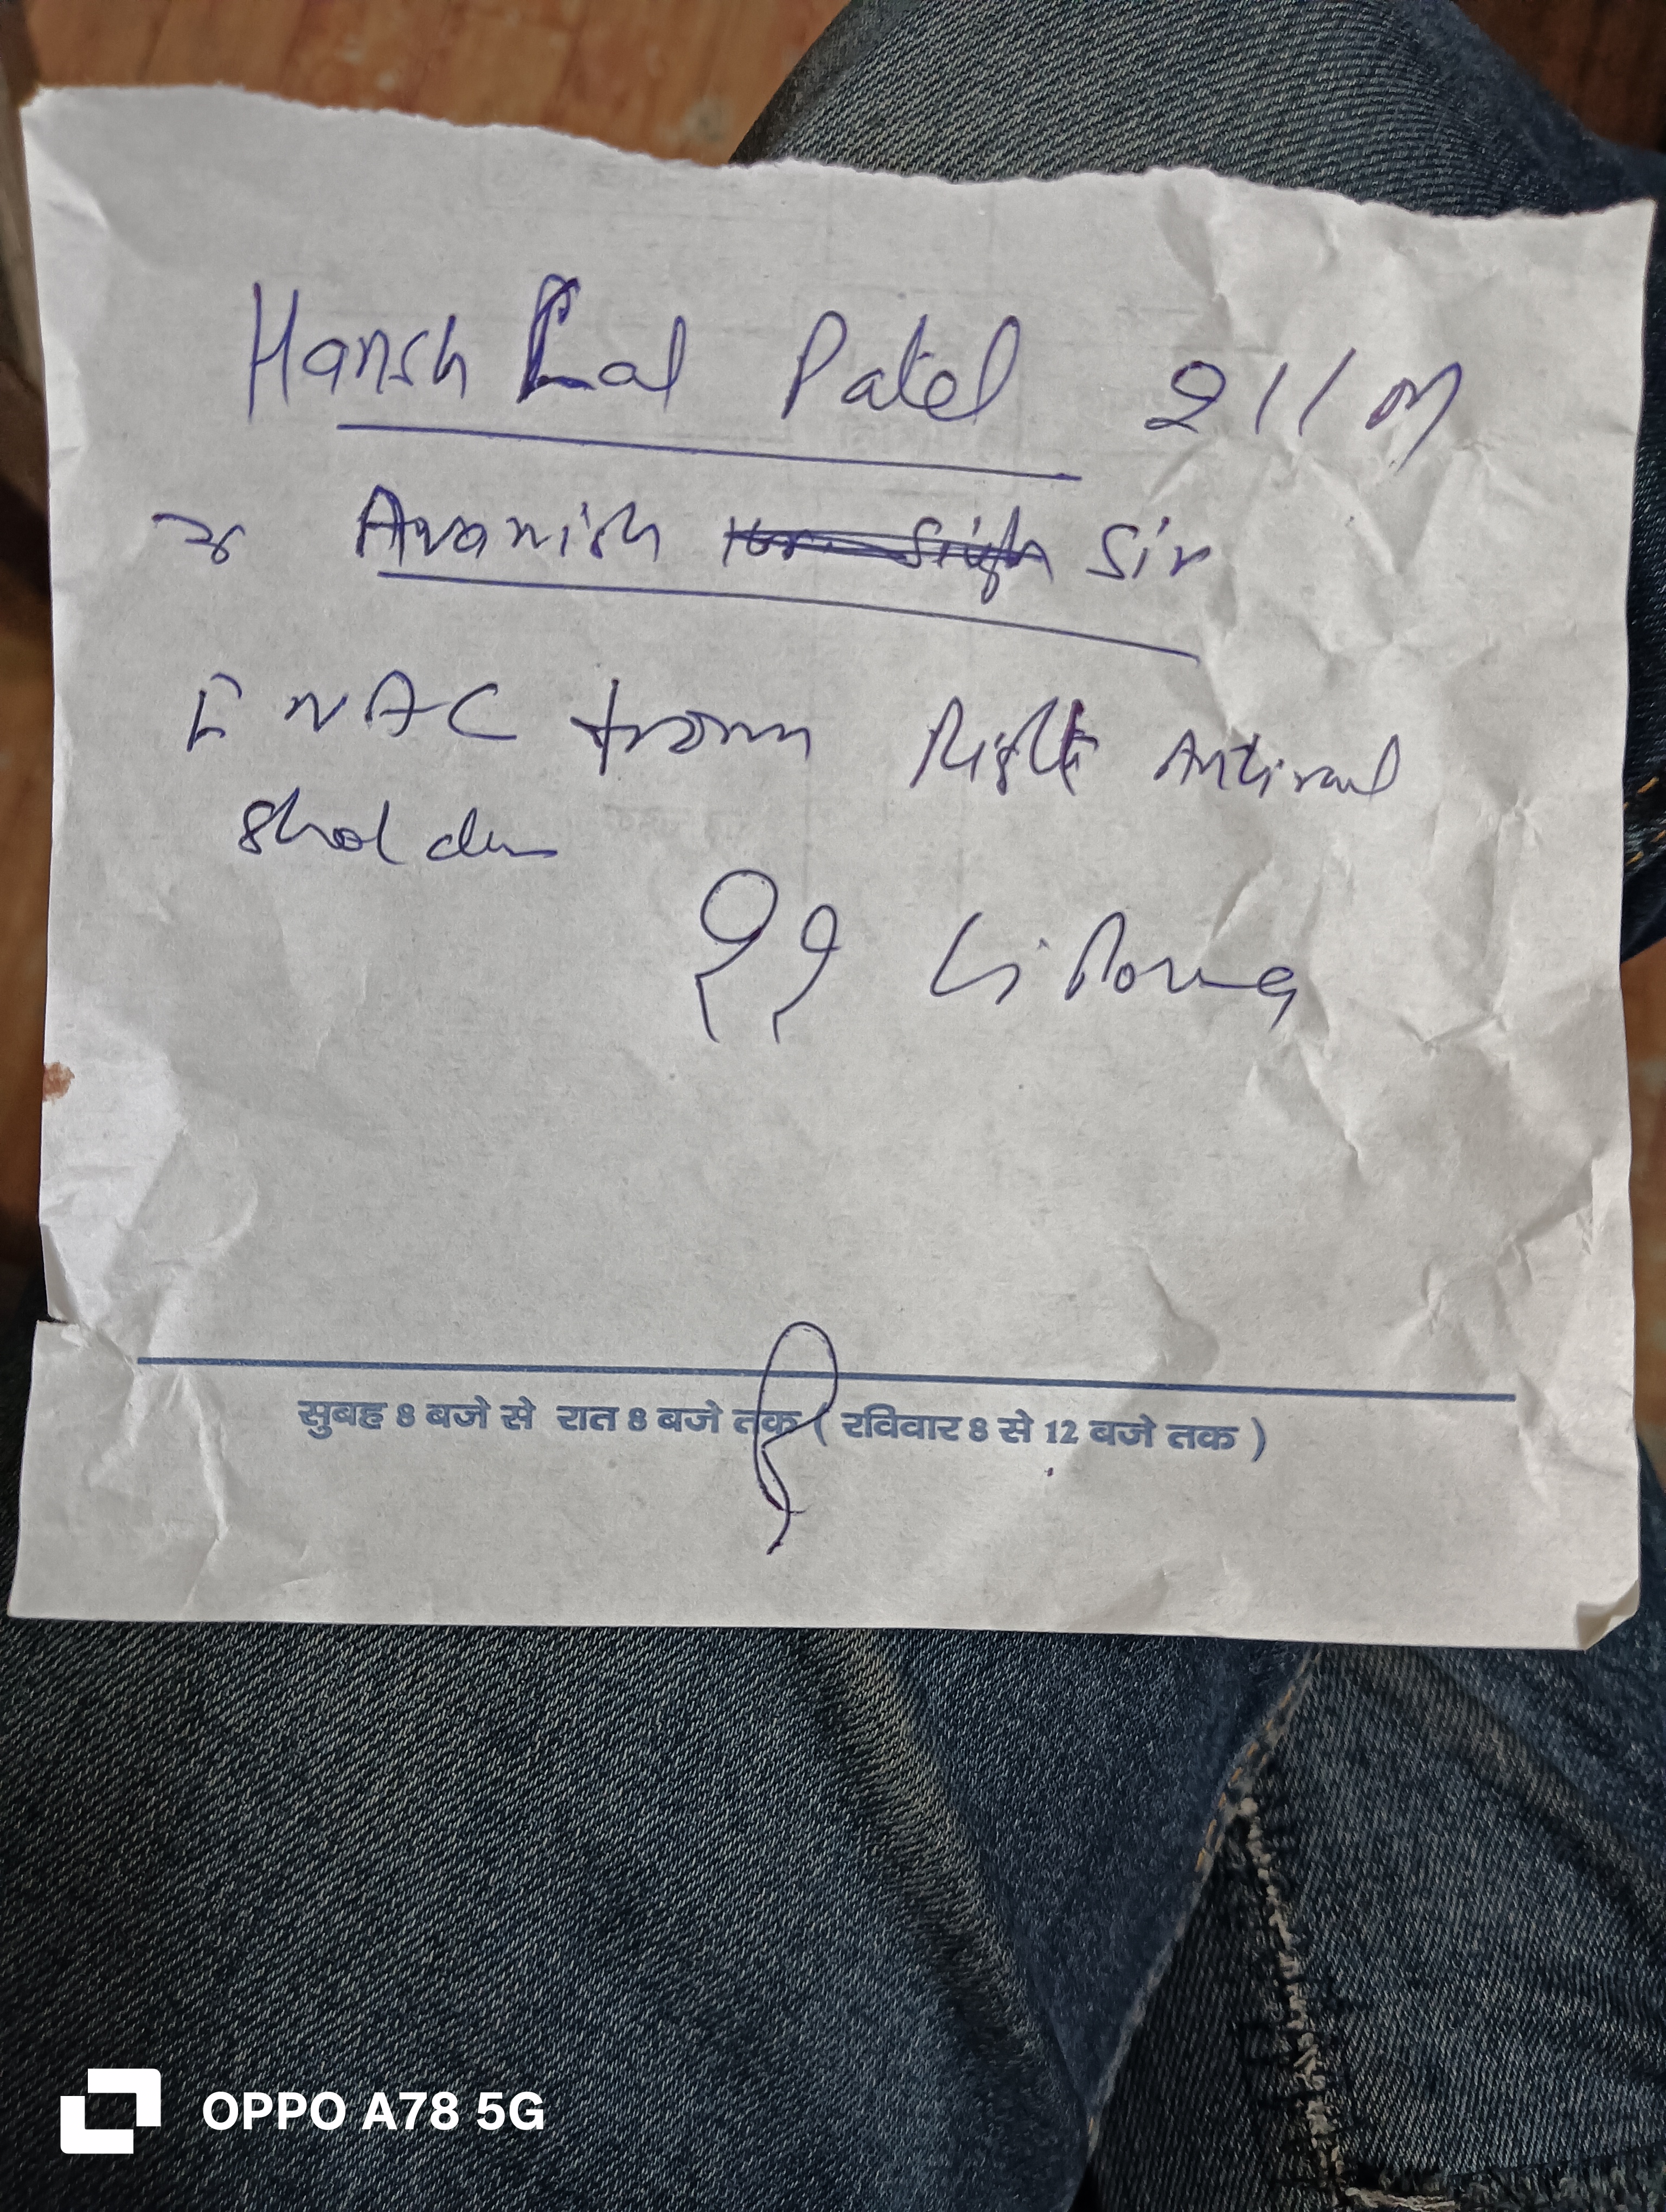 Hansh Lal Patel 21/M
Avanish Sir
FNAC from Right Antiral
Sholder
?? Lipoma
सुबह 8 बजे से रात 8 बजे तक ( रविवार 8 से 12 बजे तक )
OPPO A78 5G